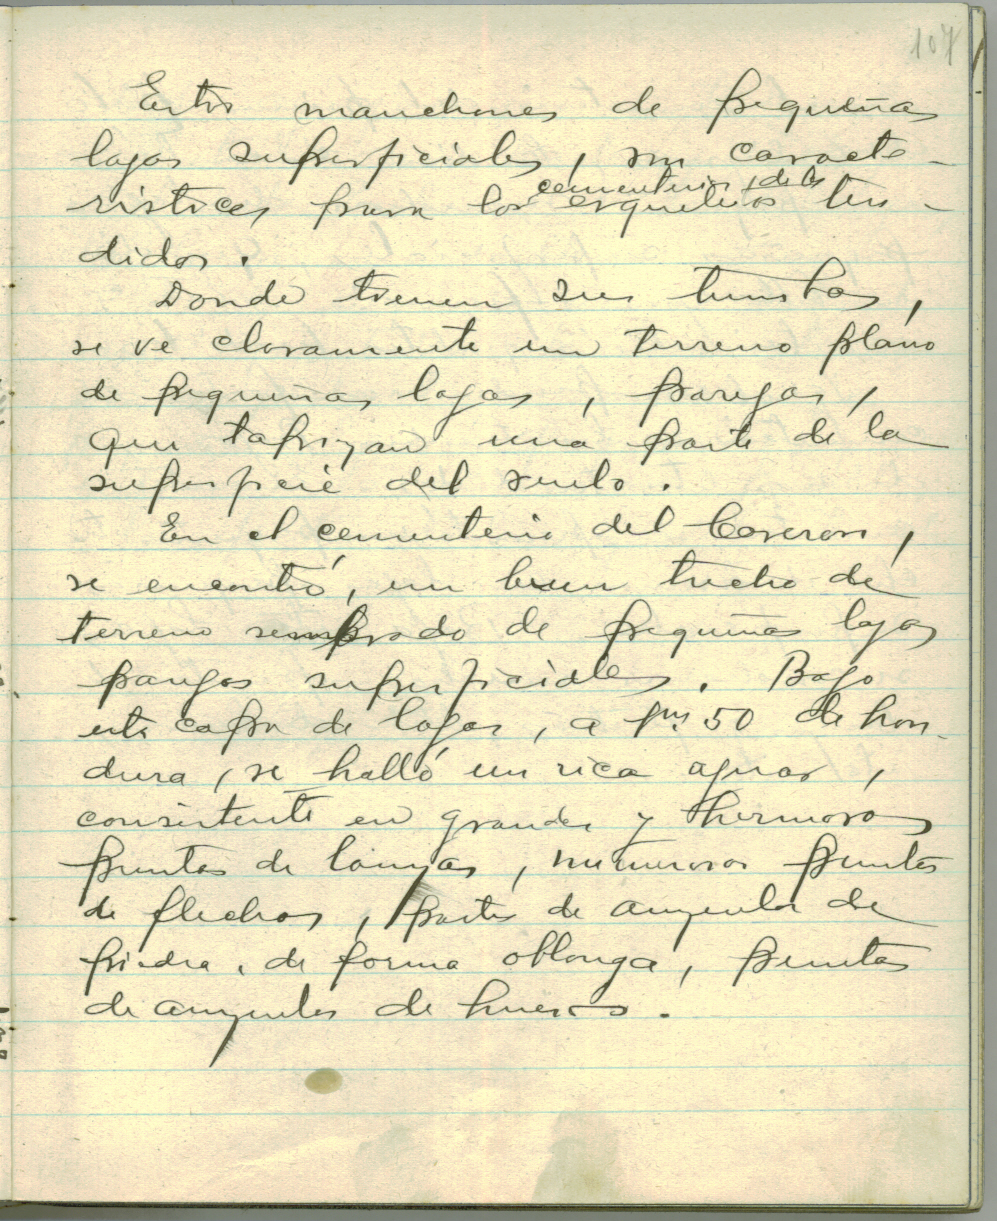 107
Estos manchones de pequeñas
lajas superficiales, son caracte-
rísticas para los cementerios de los esqueletos ten-
didos.
Donde tienen sus tumbas,
se ve claramente un terreno plano
de pequeñas lajas, parejas,
que tapizan una parte de la
superficie del suelo.
En el cementerio del
se encontró, un buen trecho de
terreno sembrado de pequeñas lajas
parejas superficiales. Bajo
esta capa de lajas, a 1 m. 50 de hon-
dura, se halló un rico ajuar,
consistente en grandes y hermosas
puntas de lanzas, numerosas puntas
de flechas, partes de anzuelos de
piedra, de forma oblonga, puntas
de anzuelos de huesos.